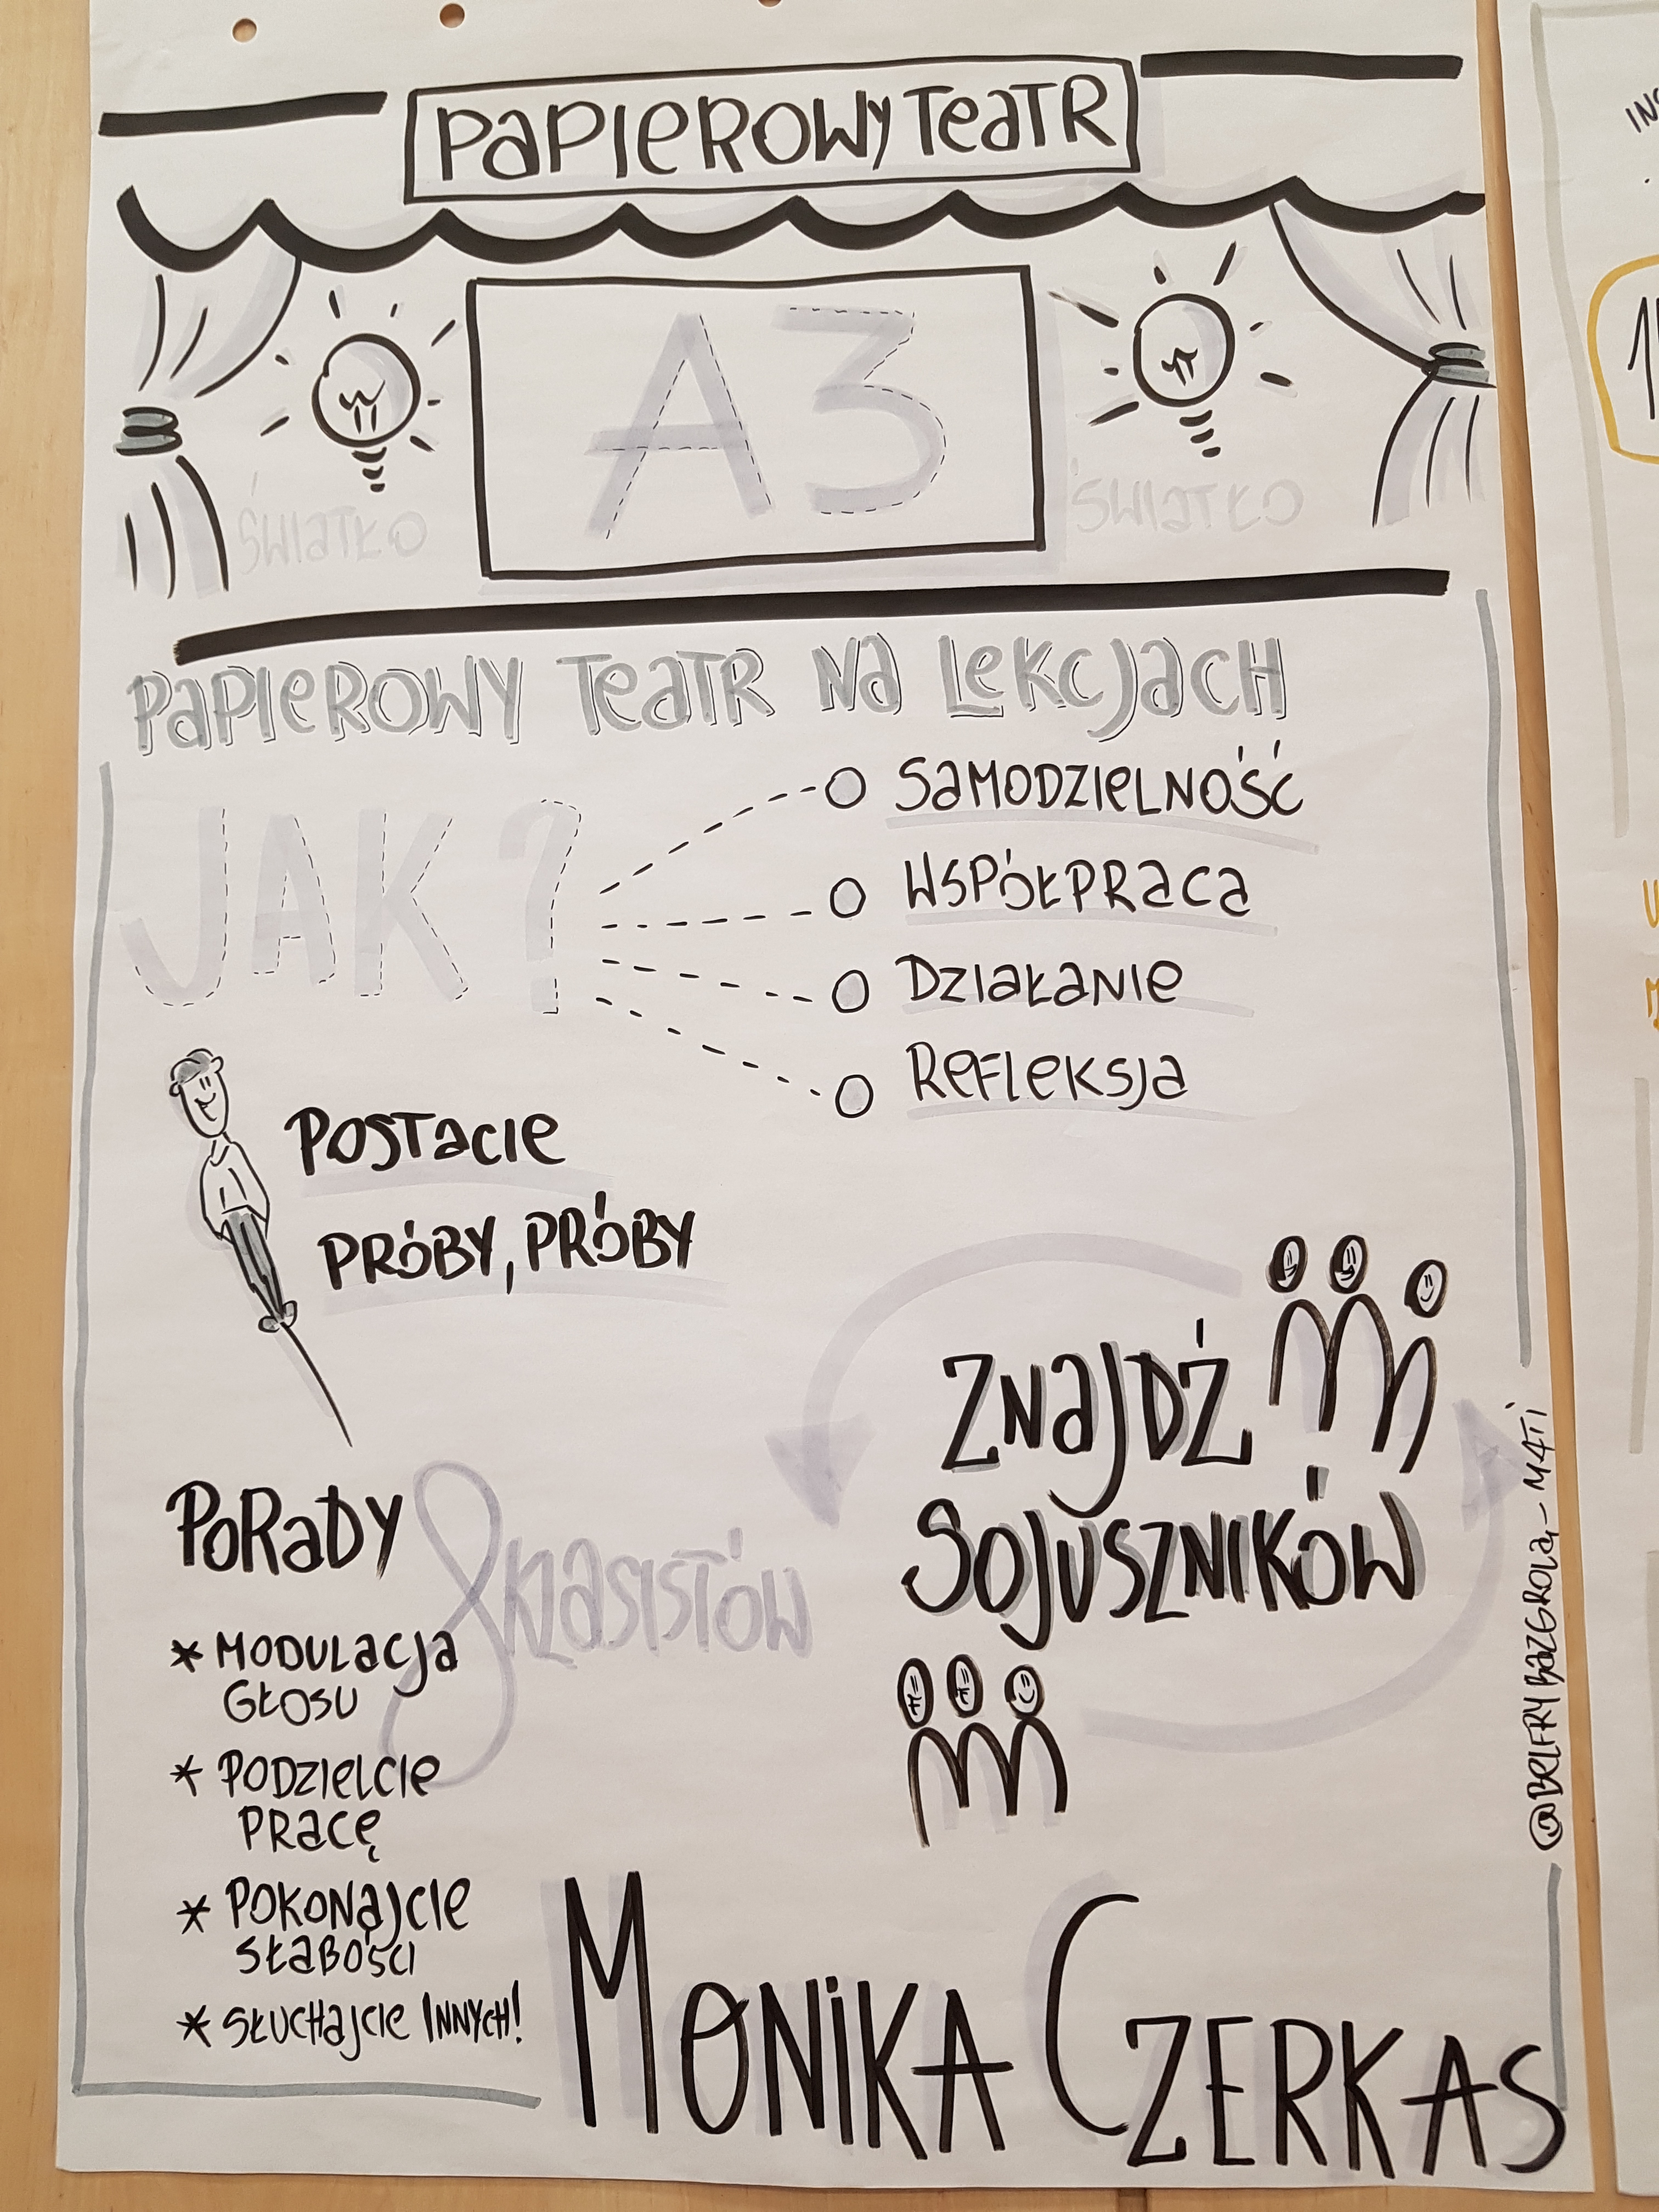 PAPIEROWY TEATR
A3
ŚWIATŁO
ŚWIATŁO
PAPIEROWY TEATR NA LEKCJACH
JAK?
SAMODZIELNOŚĆ
WSPÓŁPRACA
DZIAŁANIE
REFLEKSJA
POSTACIE
PRÓBY, PRÓBY
ZNAJDŹ
SOJUSZNIKÓW
PORADY
8KLASISTÓW
* MODULACJA
GŁOSU
* PODZIELCIE
PRACĘ
* POKONAJCIE
SŁABOŚCI
* SŁUCHAJCIE INNYCH!
MONIKA CZERKAS
@BELFRY BAZGROLĄ - M4TI